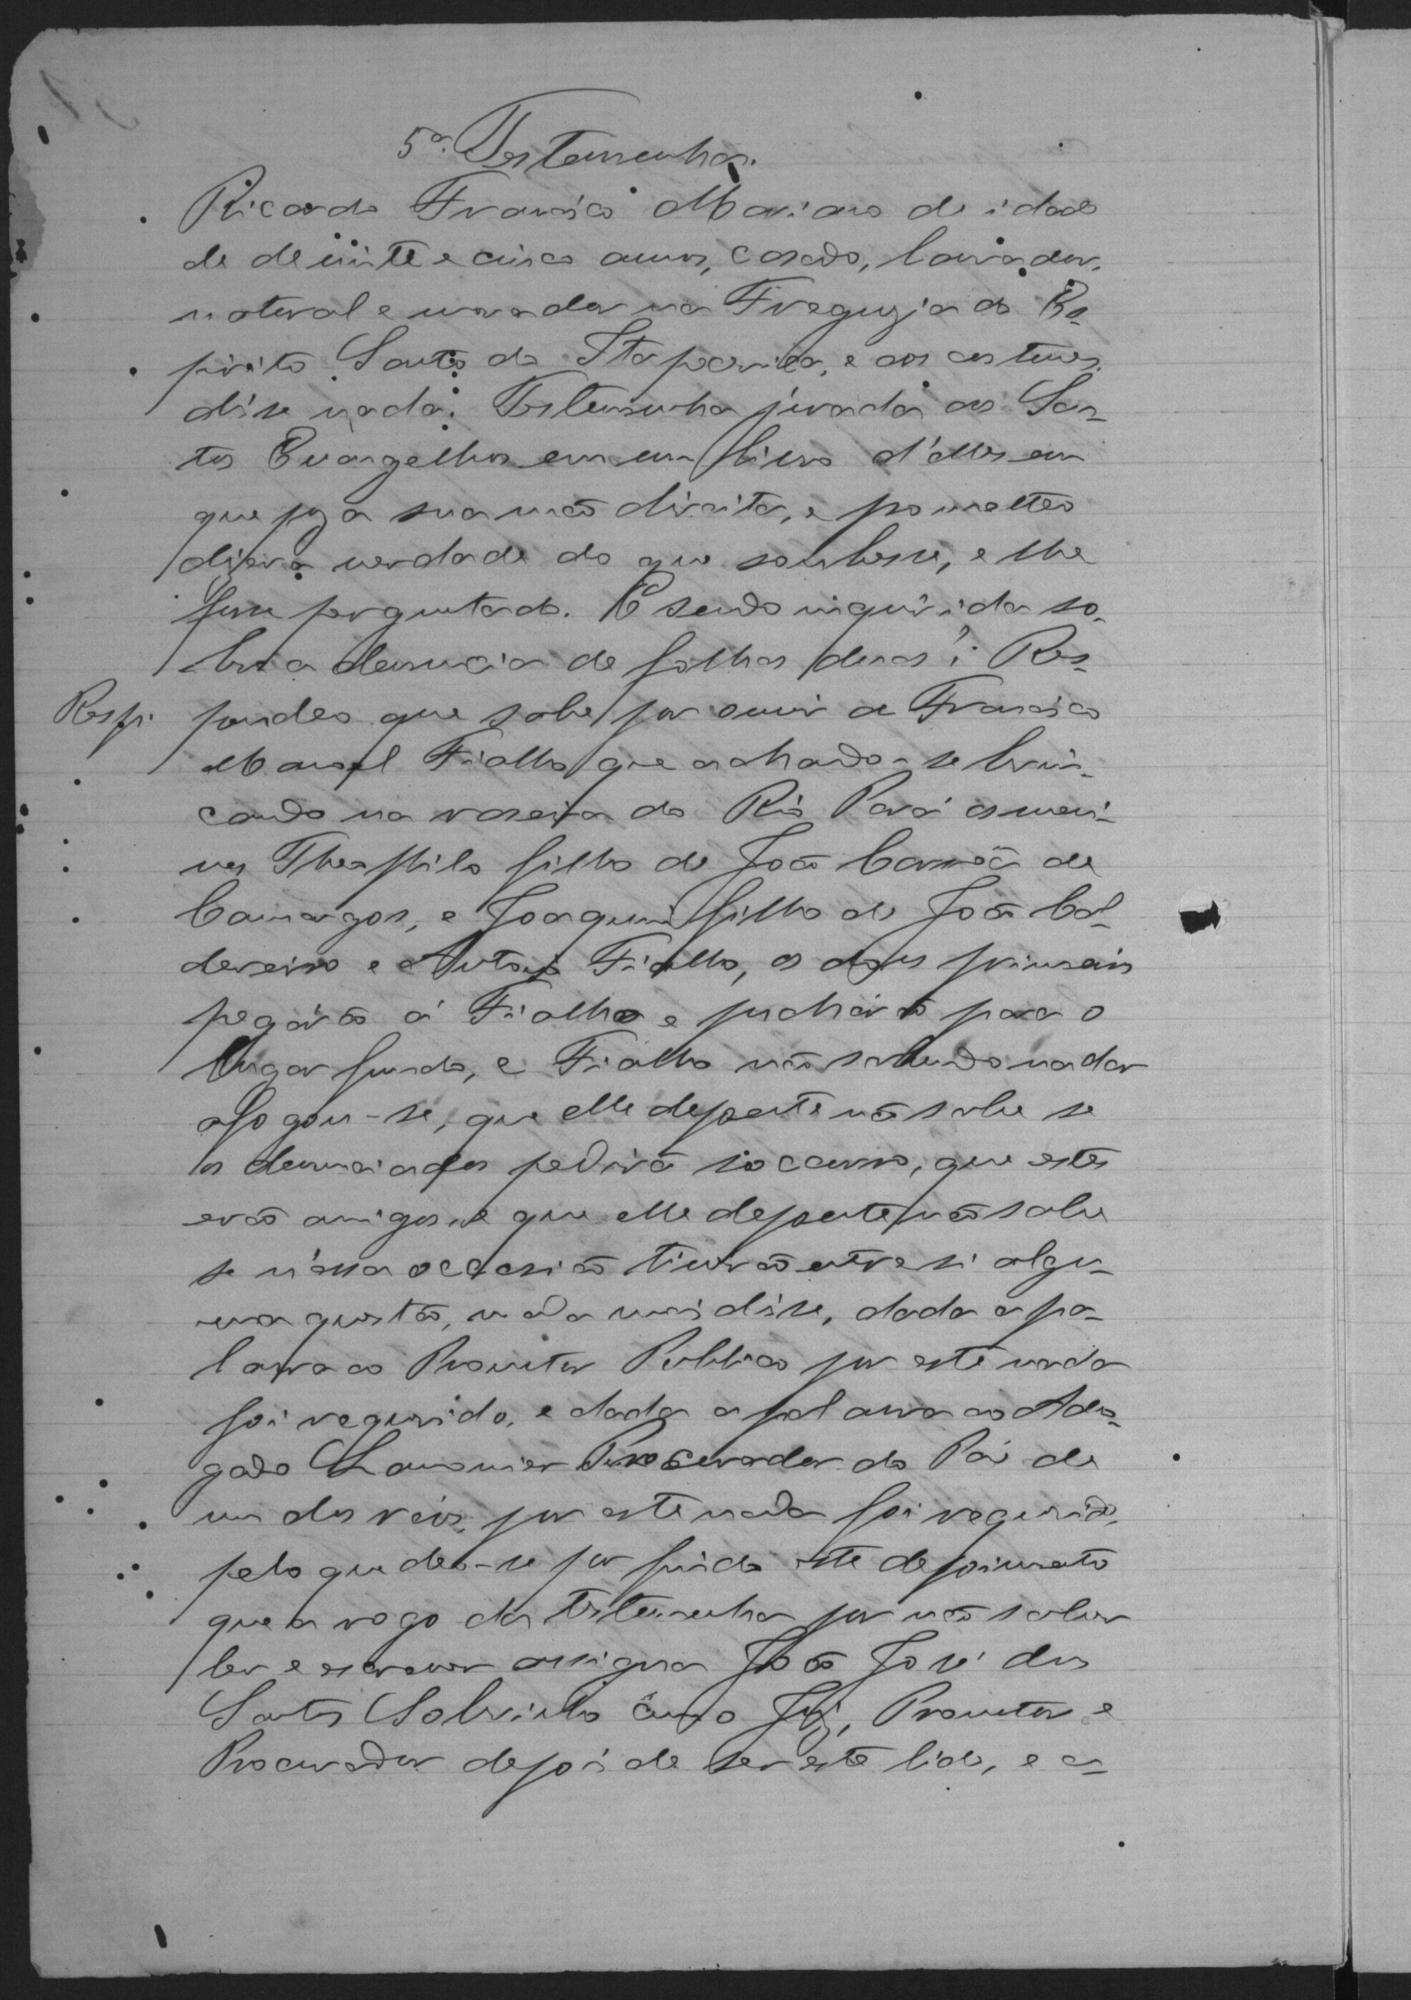 5ª Testemunha.
Ricardo Francisco Mariano de idade
de de vinte e cinco annos, casado, lavrador,
natural e morador na Freguzia do Es-
pirito Santo da Itapecerica, e aos costumes
disse nada. Testemunha jurada aos San-
tos Evangelhos em um livro d'elles em
que poz a sua mão direita, e prometteo
dizer a verdade do que soubesse, e lhe
fosse perguntado. E sendo inquirida so-
bre a denuncia de folhas duas; Res-
Resp. pondeo que sabe por ouvir a Francisco
Manoel Fialho que achando-se brin-
cando na do Rio Pará os meni-
nos Theophilo filho de João de
Camargos, e Joaquim filho de João Cal-
dereiro e Antonio Fialho, os dous primeiros
pegárão á Fialho e puchárão para o
lugar fundo, e Fialho não sabendo nadar
afogou-se, que elle depoente não sabe se
os denunciados pedirã soccorro, que estes
erão amigos, e que elle depoente não sabe
se n'essa occasião tiverão entre si algu-
ma questão, nada mais disse, dada a pa-
lavra ao Promotor Publico por este nada
foi requerido, e dada a palavra ao Advo-
gado Lamounier Procurador do Pai de
um dos réos, por este nada foi requerido,
pelo que deo-se por findo este depoimento
que a rogo da testemunha por não saber
ler e escrever assigna João José dos
Santos Sobrinho com o Juiz, Promotor e
Procurador depois de ser este lido, e a-